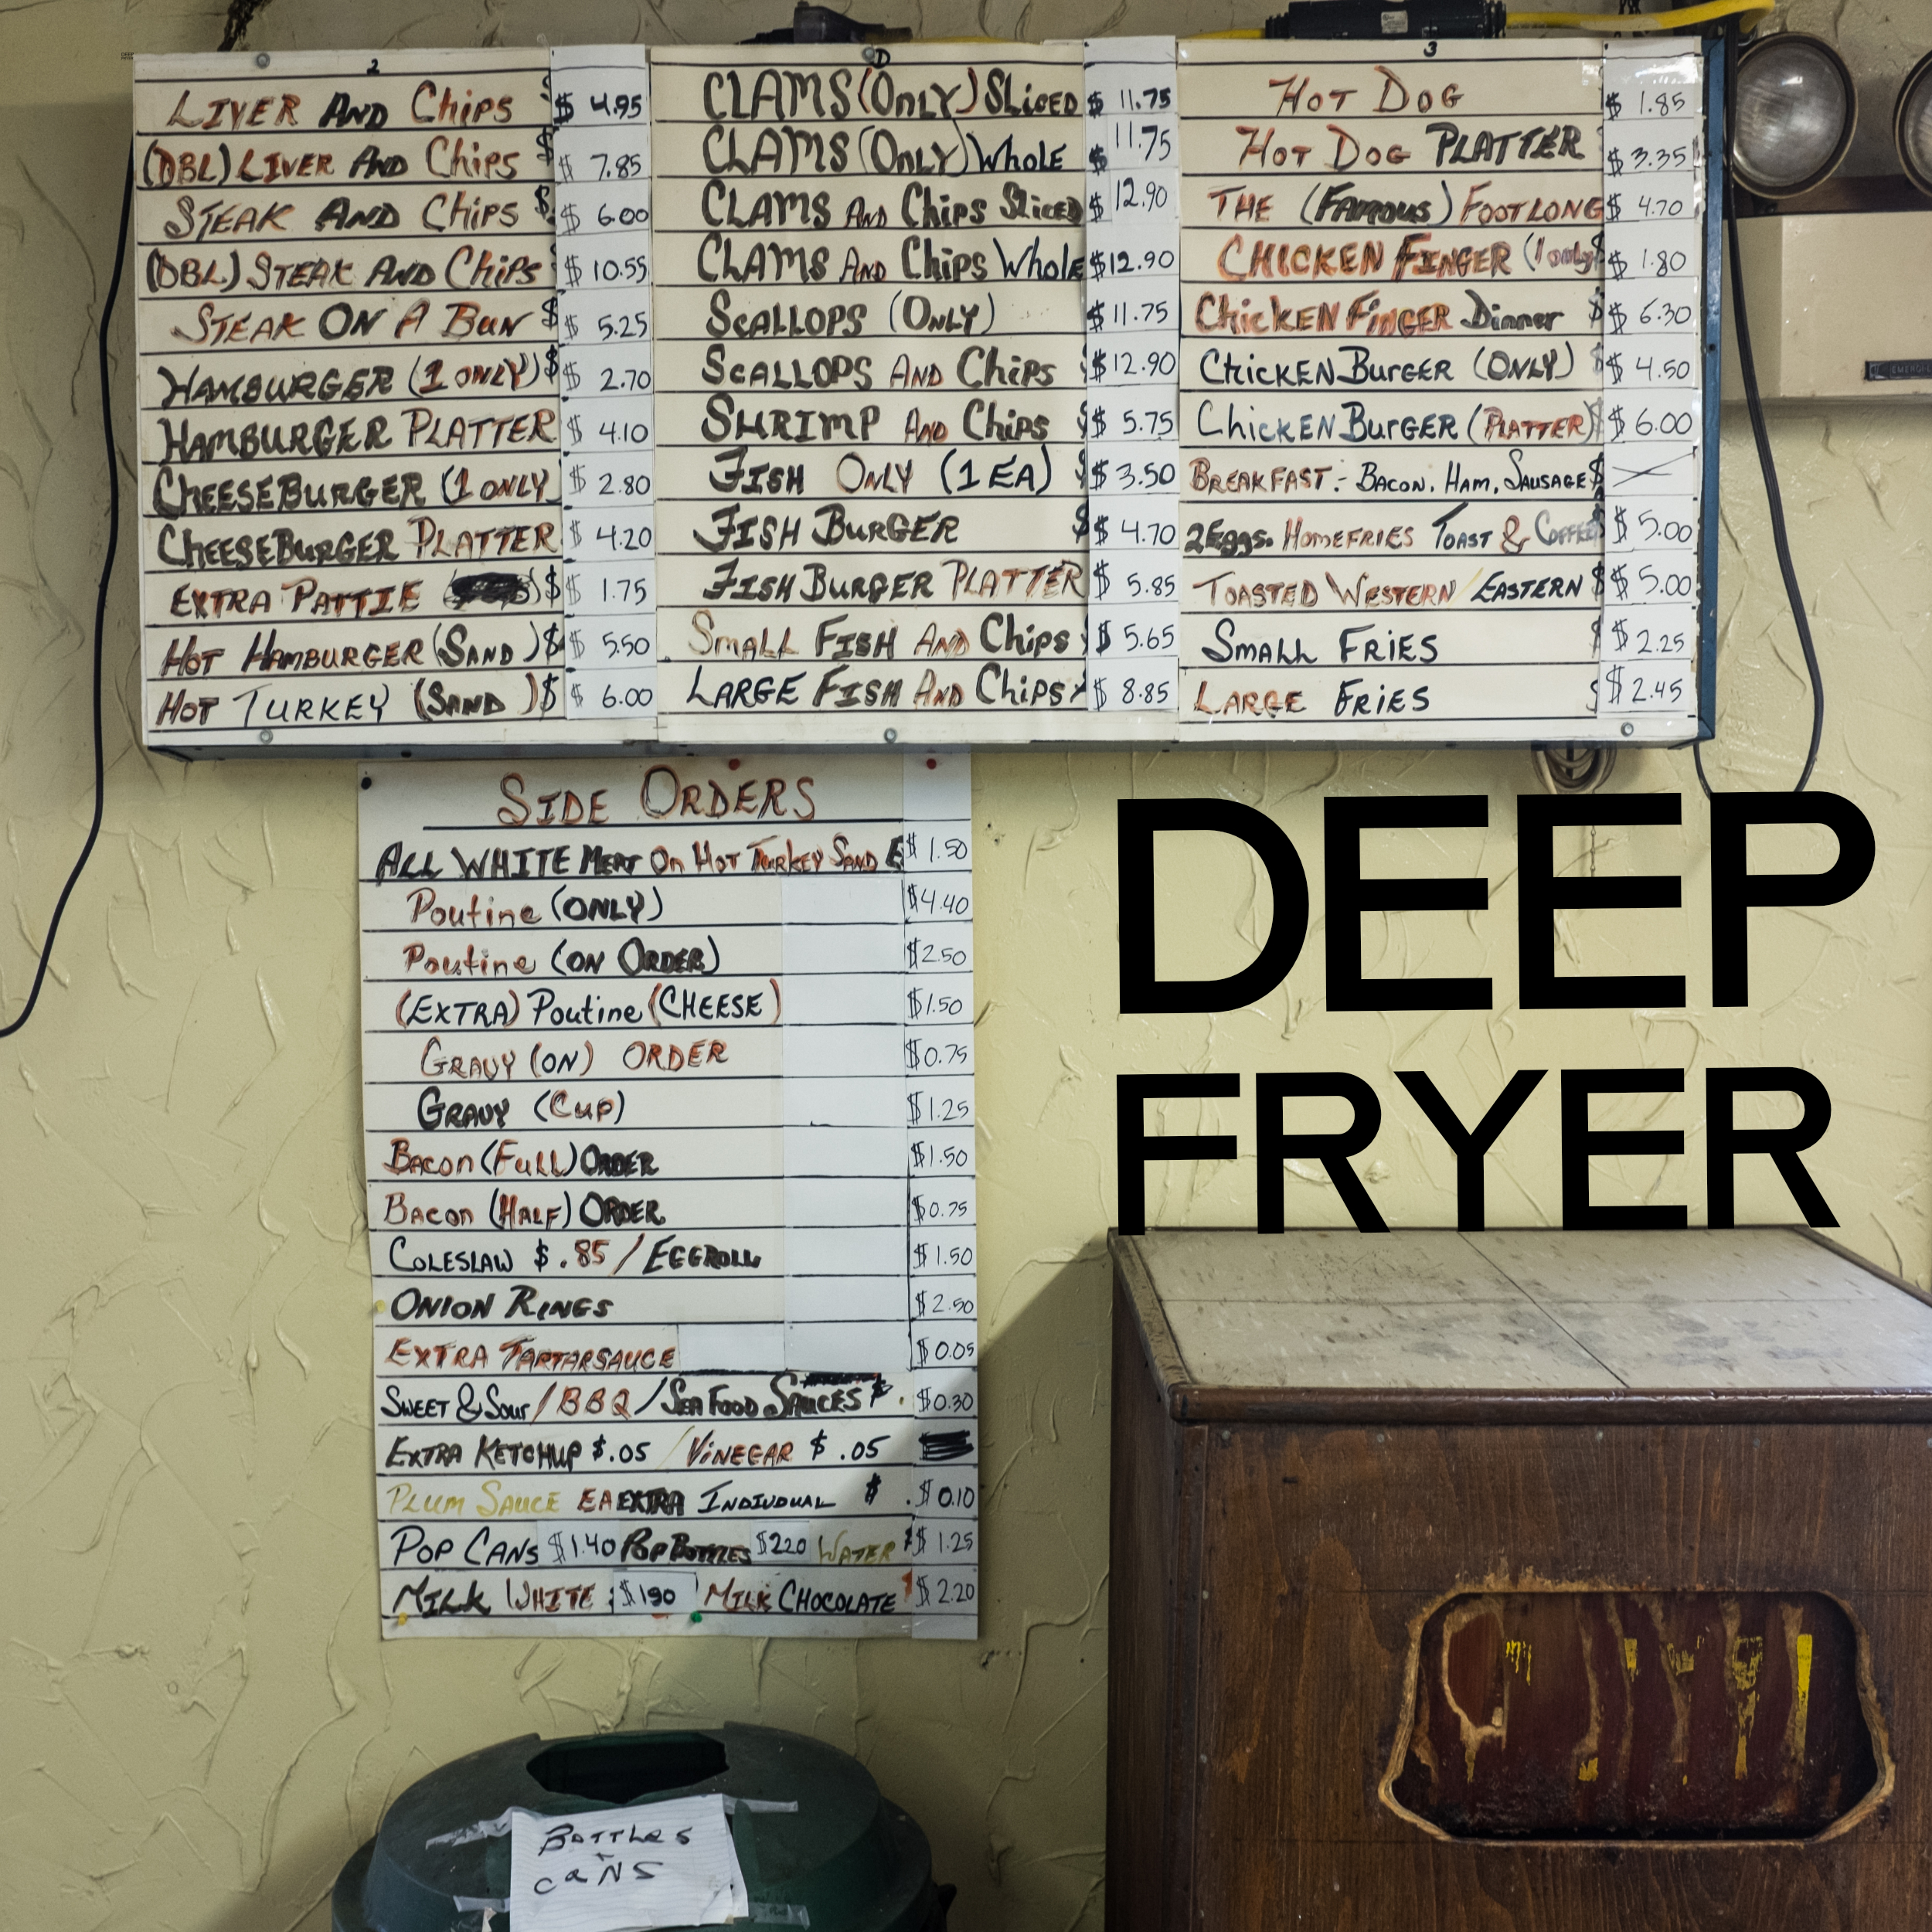 2
LIVER AND Chips $ $ 4.95
(DBL) LIVER AND Chips $ $ 7.85
STEAK AND Chips $ $ 6.00
(DBL) STEAK AND Chips $ 10.55
STEAK ON A BUN $ $ 5.25
HAMBURGER (1 ONLY) $ $ 2.70
HAMBURGER PLATTER $ 4.10
CHEESEBURGER (1 ONLY $ 2.80
CHEESEBURGER PLATTER $ 4.20
EXTRA PATTIE ( ) $ $ 1.75
HOT HAMBURGER (SAND ) $ $ 5.50
HOT TURKEY (SAND ) $ $ 6.00
D
CLAMS (ONLY) SLICED $ 11.75
CLAMS (ONLY) WHOLE $ 11.75
CLAMS AND Chips SLICED $ 12.90
CLAMS AND Chips WHOLE $12.90
SCALLOPS (ONLY) $11.75
SCALLOPS AND Chips $12.90
SHRIMP AND Chips $ $ 5.75
FISH ONLY (1 EA) $ $ 3.50
FISH BURGER $ $ 4.70
FISH BURGER PLATTER $ 5.85
SMALL FISH AND Chips $ 5.65
LARGE FISH AND Chips $ 8.85
3
HOT DOG $ 1.85
HOT DOG PLATTER $ 3.35
THE (FAMOUS) FOOTLONG $ 4.70
CHICKEN FINGER (1 only $ $ 1.80
CHICKEN FINGER Dinner $ $ 6.30
CHICKEN BURGER (ONLY) $ $ 4.50
CHICKEN BURGER (PLATTER) $ $ 6.00
BREAKFAST:- BACON, HAM, SAUSAGE $
2 EGGS. HOMEFRIES TOAST & COFFEE $ $ 5.00
TOASTED WESTERN / EASTERN $ $ 5.00
SMALL FRIES $ $ 2.25
LARGE FRIES $ $ 2.45
SIDE ORDERS
ALL WHITE MEAT On HOT TURKEY SAND $ 1.50
Poutine (ONLY) $4.40
Poutine (ON ORDER) $2.50
(EXTRA) Poutine (CHEESE) $1.50
GRAVY (ON) ORDER $0.75
GRAVY (Cup) $1.25
BACON (FULL) ORDER $1.50
BACON (HALF) ORDER $0.75
COLESLAW $.85 / EGGROLL $1.50
ONION RINGS $2.50
EXTRA TARTARSAUCE $0.05
SWEET & SOUR / BBQ / SEAFOOD SAUCES $. $0.30
EXTRA KETCHUP $.05 / VINEGAR $.05
PLUM SAUCE EA EXTRA INDIVDUAL $ . $ 0.10
POP CANS $1.40 POP BOTTLES $2.20 WATER $ $ 1.25
MILK WHITE : $190 MILK CHOCOLATE $ 2.20
DEEP
FRYER
BOTTLES
CANS